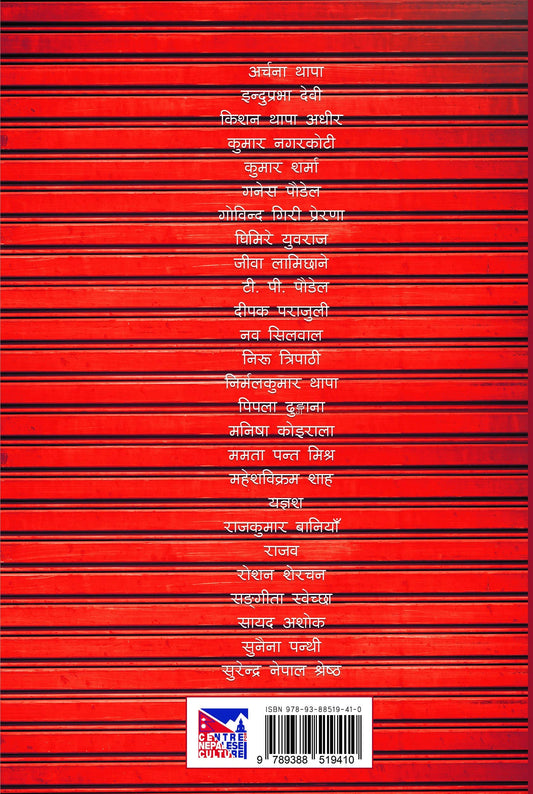 अर्चना थापा
इन्दुप्रभा देवी
किशन थापा अधीर
कुमार नगरकोटी
कुमार शर्मा
गनेस पौडेल
गोविन्द गिरी प्रेरणा
घिमिरे युवराज
जीवा लामिछाने
टी. पी. पौडेल
दीपक पराजुली
नव सिलवाल
निरू त्रिपाठी
निर्मलकुमार थापा
पिपला ढुङ्गाना
मनिषा कोइराला
ममता पन्त मिश्र
महेशविक्रम शाह
यज्ञश
राजकुमार बानियाँ
राजव
रोशन शेरचन
सङ्गीता स्वेच्छा
सायद अशोक
सुनैना पन्थी
सुरेन्द्र नेपाल श्रेष्ठ
ISBN 978-93-88519-41-0
CENTRE
NEPALESE
CULTURE
9 789388 519410